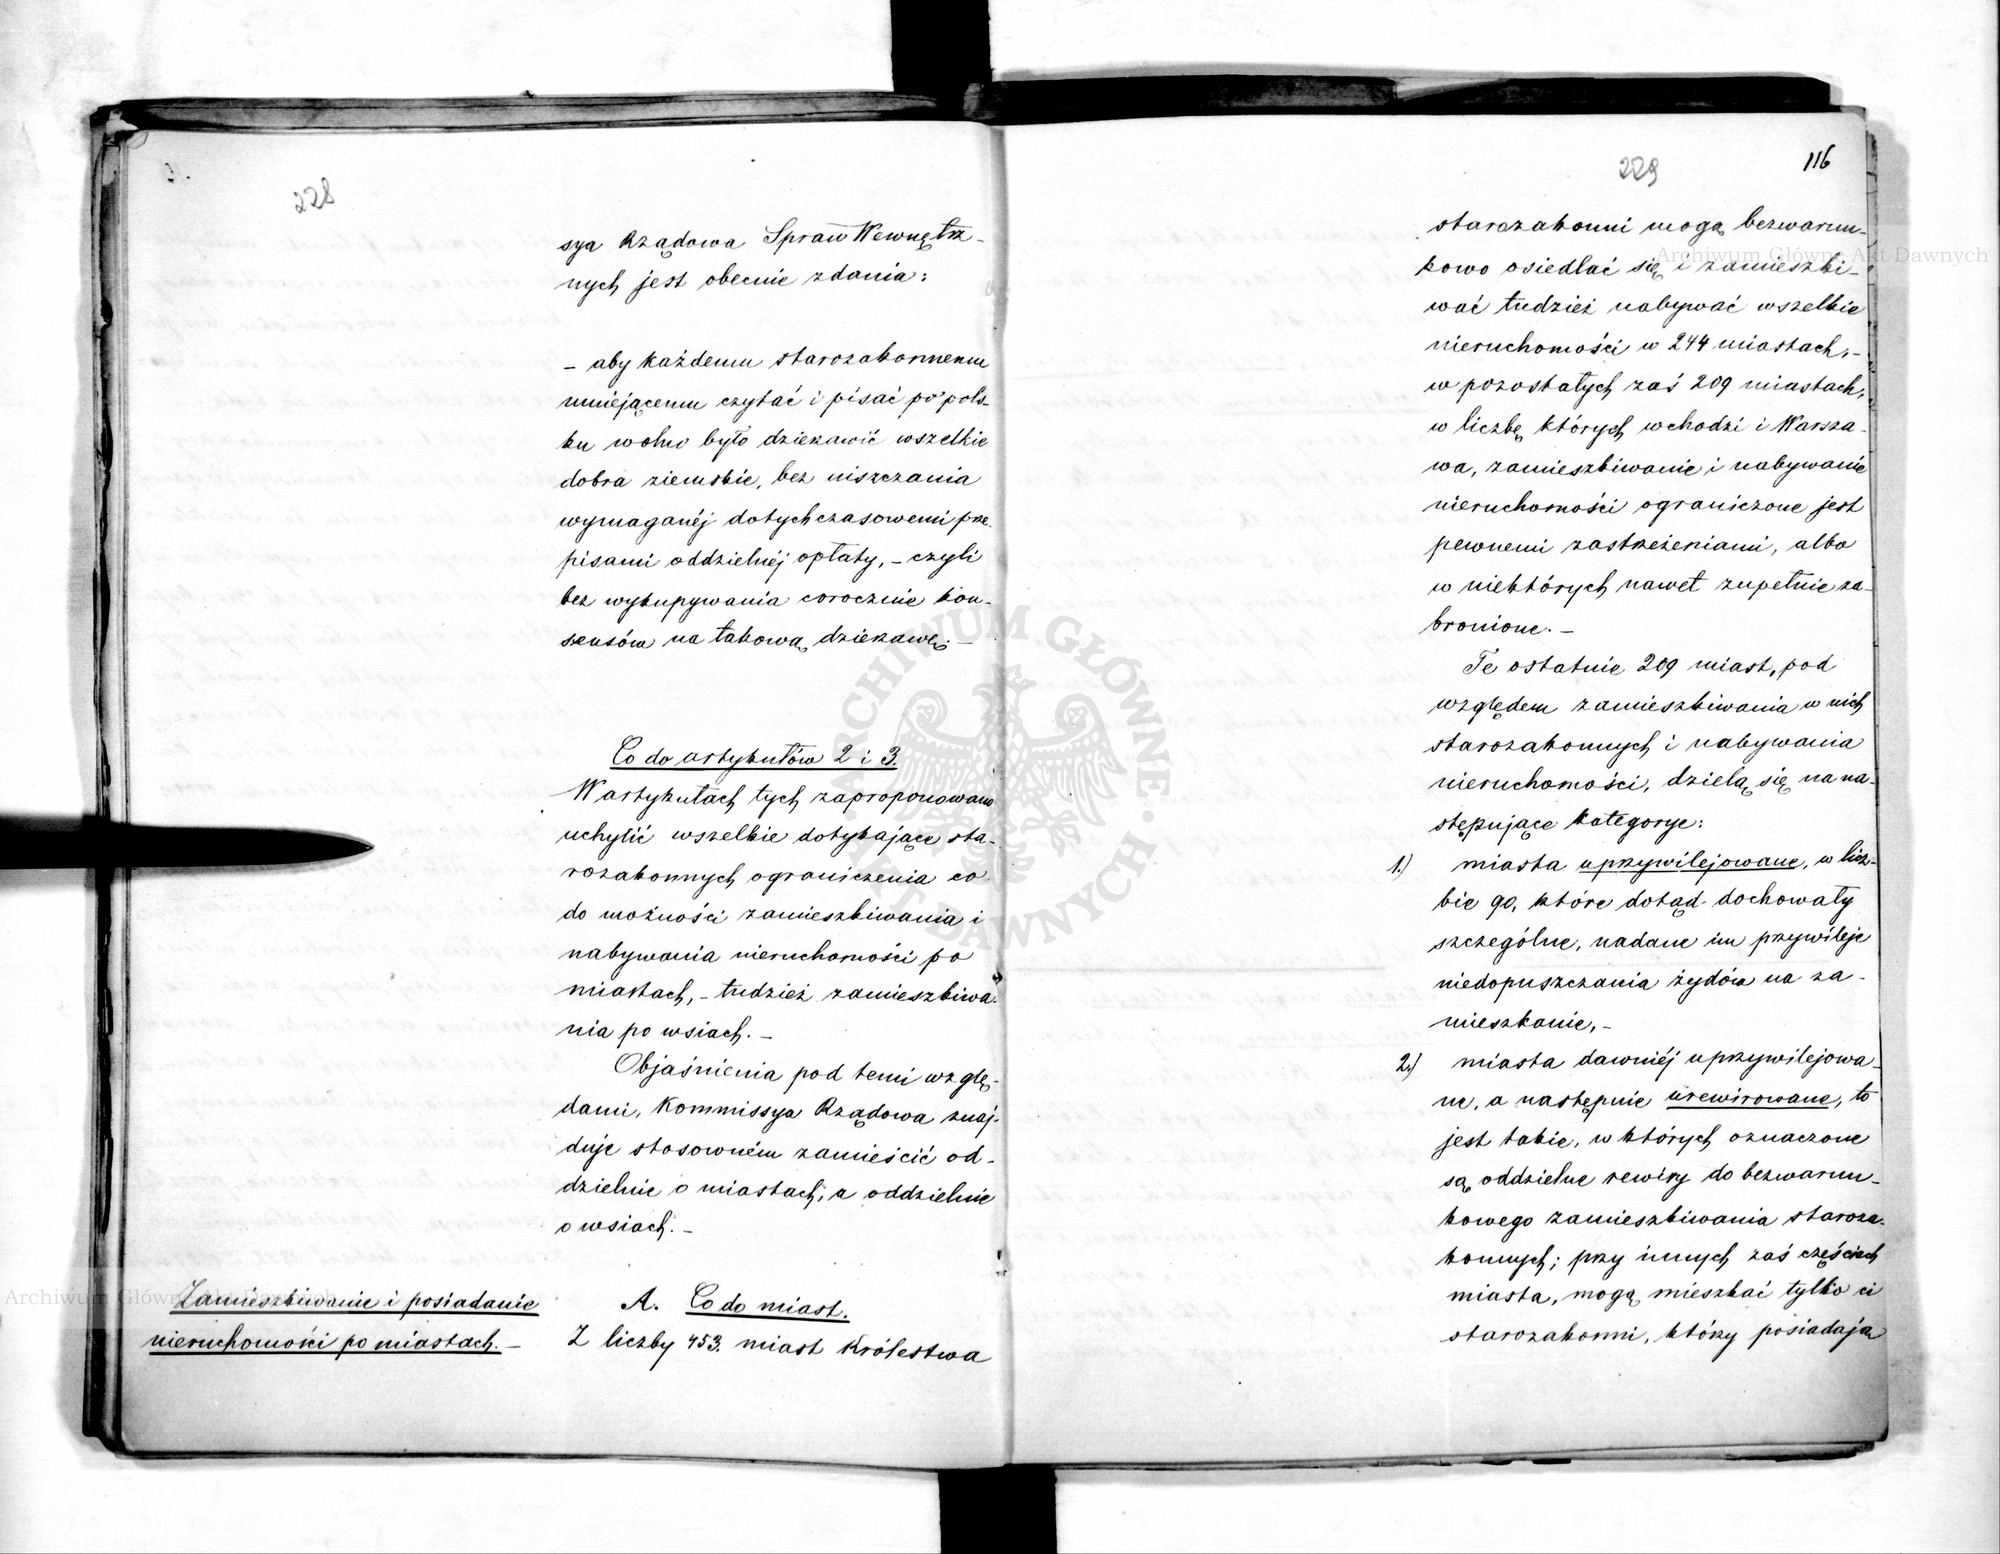 228
sya Rządowa Spraw Wewnętrz-
nych jest obecnie zdania:
– aby każdemu starozakonnemu
umiejącemu czytać i pisać po pols-
ku wolno było dzierżawić wszelkie
dobra ziemskie, bez uiszczania
wymaganéj dotychczasowemi prze-
pisami oddzielnéj opłaty, – czyli
bez wykupywania corocznie kon-
sensów na takową dzierżawę. –
Co do artykułów 2 i 3.
W artykułach tych zaproponowano
uchylić wszelkie dotykające sta-
rozakonnych ograniczenia co
do możności zamieszkiwania i
nabywania nieruchomości po
miastach, – tudzież zamieszkiwa-
nia po wsiach. –
Objaśnienia pod temi wzglę-
dami, Kommissya Rządowa znaj-
duje stosowném zamieścić od-
dzielnie o miastach, a oddzielnie
o wsiach. –
Zamieszkiwanie i posiadanie
nieruchomości po miastach. –
A. Co do miast.
Z liczby 453. miast Królestwa
229
116
starozakonni mogą bezwarun-
kowo osiedlać się i zamieszki-
wać tudzież nabywać wszelkie
nieruchomości w 244 miastach, –
w pozostałych zaś 209 miastach,
w liczbę których wchodzi i Warsza-
wa, zamieszkiwanie i nabywanie
nieruchomości ograniczone jest
pewnemi zastrzeżeniami, albo
w niektórych nawet zupełnie za-
bronione. –
Te ostatnie 209 miast, pod
względem zamieszkiwania w nich
starozakonnych i nabywania
nieruchomości, dzielą się na na-
stępujące kategorye:
1.) miasta uprzywilejowane, w licz-
bie 90, które dotąd dochowały
szczególne, nadane im przywileje
niedopuszczania żydów na za-
mieszkanie, –
2.) miasta dawniéj uprzywilejowa-
ne, a następnie urewirowane, to
jest takie, w których oznaczone
są oddzielne rewiry do bezwarun-
kowego zamieszkiwania staroza-
konnych; przy innych zaś częściach
miasta, mogą mieszkać tylko ci
starozakonni, którzy posiadają
Archiwum Główne Akt Dawnych
Archiwum Główne Akt Dawnych
ARCHIWUM GŁÓWNE AKT DAWNYCH